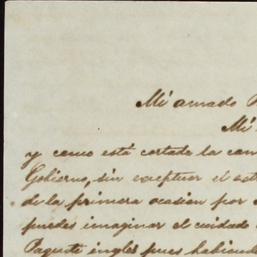 Mi amado
Mi
y como está cortada la
Gobierno, sin exceptuar el
de la primera ocasion por
puedes imaginar el cuidado
Paquete ingles pues habiendo